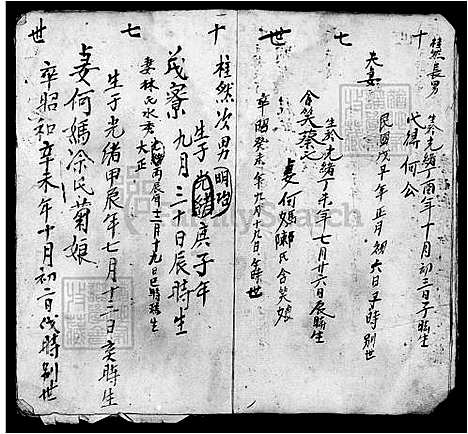 十 七 世
桂然長男
代得何公
生於光緒丁酉年十月初三日子時生
民國戊午年正月初六日丑時別世
夫妻
含笑蔡氏
生於光緒丁未年七月廿六日辰時生
妻何媽鄭氏含笑娘
卒昭癸未年九月十九日午時世
十 七 世
桂然次男明
生于光緒庚子年
茂寮九月三十日辰時生
妻林氏水秀
大正
丙辰年十二月十九日巳時生
生于光緒甲辰年七月十二日亥時生
妻何媽涂氏菊娘
卒昭和辛未年十月初二日戌時別世
FamilySearch